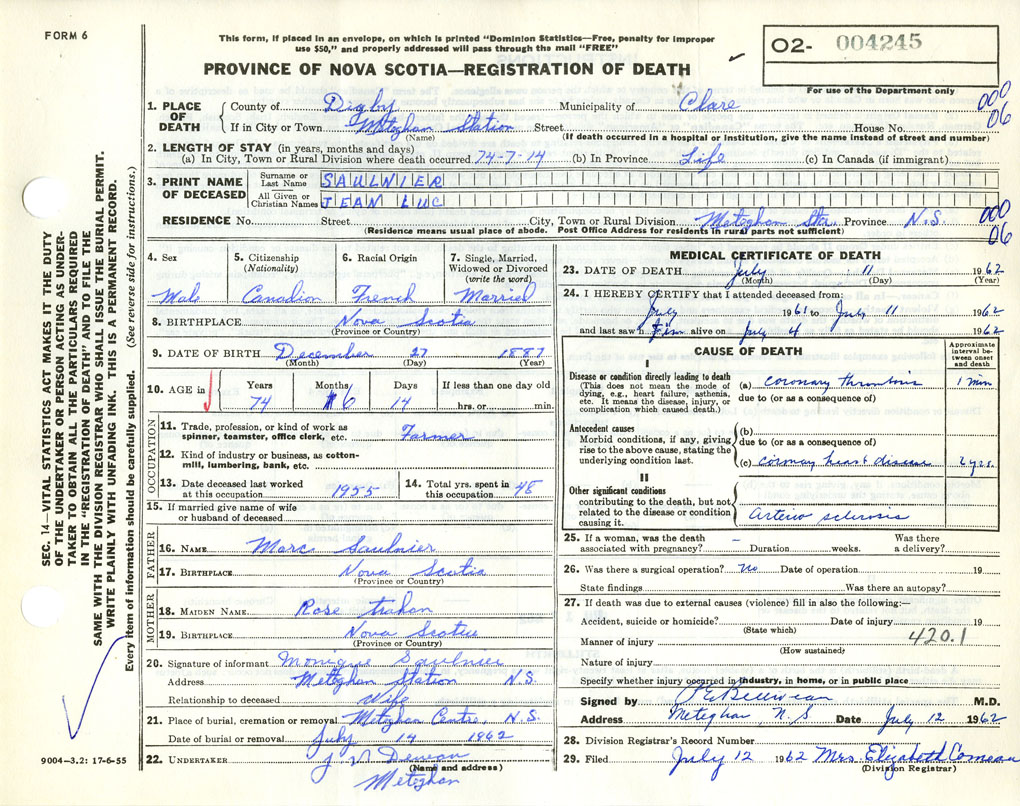 FORM 6
This form, if placed in an envelope, on which is printed "Dominion Statistics—Free, penalty for improper
use $50," and properly addressed will pass through the mail "FREE"
O2- 004245
PROVINCE OF NOVA SCOTIA—REGISTRATION OF DEATH
For use of the Department only
1. PLACE OF DEATH { County of Digby Municipality of Clare 000
If in City or Town Meteghan Station Street House No. 06
(Name) (If death occurred in a hospital or institution, give the name instead of street and number)
2. LENGTH OF STAY (in years, months and days)
(a) In City, Town or Rural Division where death occurred 74-7-14 (b) In Province Life (c) In Canada (if immigrant)
3. PRINT NAME OF DECEASED Surname or Last Name SAULNIER
All Given or Christian Names JEAN LUC
RESIDENCE No. Street City, Town or Rural Division Meteghan Sta. Province N.S. 000
(Residence means usual place of abode. Post Office Address for residents in rural parts not sufficient) 06
4. Sex 5. Citizenship (Nationality) 6. Racial Origin 7. Single, Married, Widowed or Divorced (write the word)
Male Canadian French Married
8. BIRTHPLACE Nova Scotia
(Province or Country)
9. DATE OF BIRTH December 27 1887
(Month) (Day) (Year)
10. AGE in Years Months Days If less than one day old
74 6 14 hrs. or min.
OCCUPATION
11. Trade, profession, or kind of work as
spinner, teamster, office clerk, etc. Farmer
12. Kind of industry or business, as cotton-
mill, lumbering, bank, etc.
13. Date deceased last worked at this occupation 1955 14. Total yrs. spent in this occupation 48
15. If married give name of wife
or husband of deceased
FATHER
16. NAME Marc Saulnier
17. BIRTHPLACE Nova Scotia
(Province or Country)
MOTHER
18. MAIDEN NAME Rose trahan
19. BIRTHPLACE Nova Scotia
(Province or Country)
20. Signature of informant Monique Saulnier
Address Meteghan Station N.S.
Relationship to deceased Wife
21. Place of burial, cremation or removal Meteghan Centre, N.S.
Date of burial or removal July 14 1962
22. UNDERTAKER J V
(Name and address)
Meteghan
MEDICAL CERTIFICATE OF DEATH
23. DATE OF DEATH July 11 1962
(Month) (Day) (Year)
24. I HEREBY CERTIFY that I attended deceased from:
July 1961 to July 11 1962
and last saw him alive on July 4 1962
CAUSE OF DEATH
Approximate interval be- tween onset and death
I
Disease or condition directly leading to death
(This does not mean the mode of
dying, e.g., heart failure, asthenia,
etc. It means the disease, injury, or
complication which caused death.)
(a) coronary thrombosis 1 min
due to (or as a consequence of)
Antecedent causes
Morbid conditions, if any, giving
rise to the above cause, stating the
underlying condition last.
(b)
due to (or as a consequence of)
(c) coronary heart disease 2 yrs.
II
Other significant conditions
contributing to the death, but not
related to the disease or condition
causing it.
Arterio sclerosis
25. If a woman, was the death – Was there
associated with pregnancy? Duration weeks. a delivery?
26. Was there a surgical operation? No Date of operation 19
State findings Was there an autopsy?
27. If death was due to external causes (violence) fill in also the following:—
Accident, suicide or homicide? Date of injury 19
(State which)
Manner of injury 420.1
(How sustained)
Nature of injury
Specify whether injury occurred in industry, in home, or in public place
Signed by M.D.
Address Meteghan, N.S Date July 12 1962
28. Division Registrar's Record Number
29. Filed July 12 1962 Mrs. Elizabeth Comeau
(Division Registrar)
SEC. 14—VITAL STATISTICS ACT MAKES IT THE DUTY
OF THE UNDERTAKER OR PERSON ACTING AS UNDER-
TAKER TO OBTAIN ALL THE PARTICULARS REQUIRED
IN THE "REGISTRATION OF DEATH" AND TO FILE THE
SAME WITH THE DIVISION REGISTRAR WHO SHALL ISSUE THE BURIAL PERMIT.
WRITE PLAINLY WITH UNFADING INK. THIS IS A PERMANENT RECORD.
Every item of information should be carefully supplied. (See reverse side for instructions.)
9004-3.2: 17-6-55